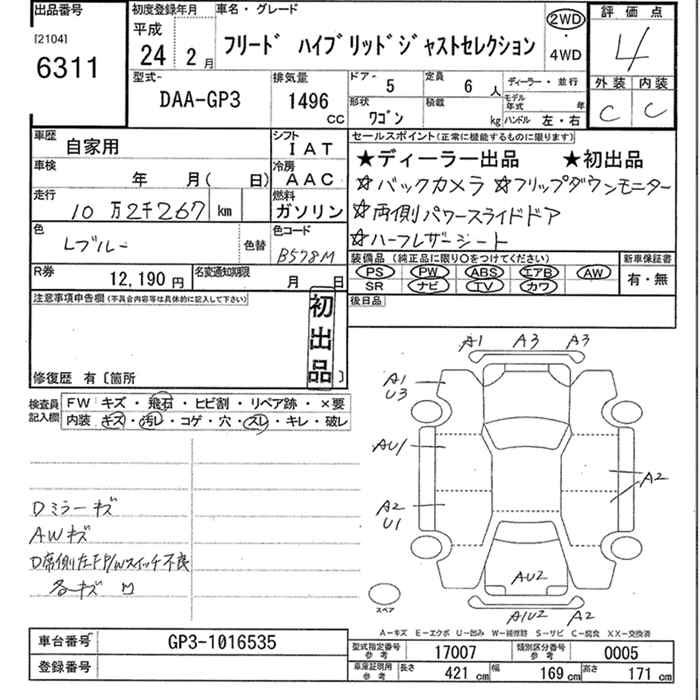 出品番号
[2104]
6311
初度登録年月
平成
24 2月
車名・グレード
フリード ハイブリッドジャストセレクション
2WD
・
4WD
評価点
4
外装 内装
C C
型式-
DAA-GP3
排気量
1496
CC
ドア- 5
定員 6 人
ディーラー・並行
形状
ワゴン
積載
kg
モデル年式 年
ハンドル 左・右
車歴 自家用
シフト
IAT
車検 年 月( 日)
冷房
AAC
走行 10万2千267 km
燃料
ガソリン
色 Lブルー
色替
色コード
B578M
R券 12,190円
名変通知期限 月 日
セールスポイント(正常に機能するものに限ります)
★ディーラー出品 ★初出品
☆バックカメラ ☆フリップダウンモニター
☆両側パワースライドドア
☆ハーフレザーシート
装備品 (純正品に限り○をつけてください)
PS PW ABS エアB AW
SR ナビ TV カワ
新車保証書
有・無
後日品
注意事項申告欄(不具合内容等は具体的に記入して下さい)
初出品
修復歴 有〔箇所 〕
検査員記入欄
FW キズ・飛石・ヒビ割・リペア跡・×要
内装 キズ・汚レ・コゲ・穴・スレ・キレ・破レ
Dミラーキズ
AWキズ
D席側左FP/Wスイッチ不良
各キズ
A1 A3 A3
A1
U3
AU1
A2
A2
U1
AU2
A1U2 A2
スペア
A-キズ E-エクボ U-凹み W-補修跡 S-サビ C-腐食 XX-交換済
車台番号 GP3-1016535
登録番号
型式指定番号参考 17007
類別区分番号参考 0005
車庫証明用参考 長さ 421 cm 幅 169 cm 高さ 171 cm